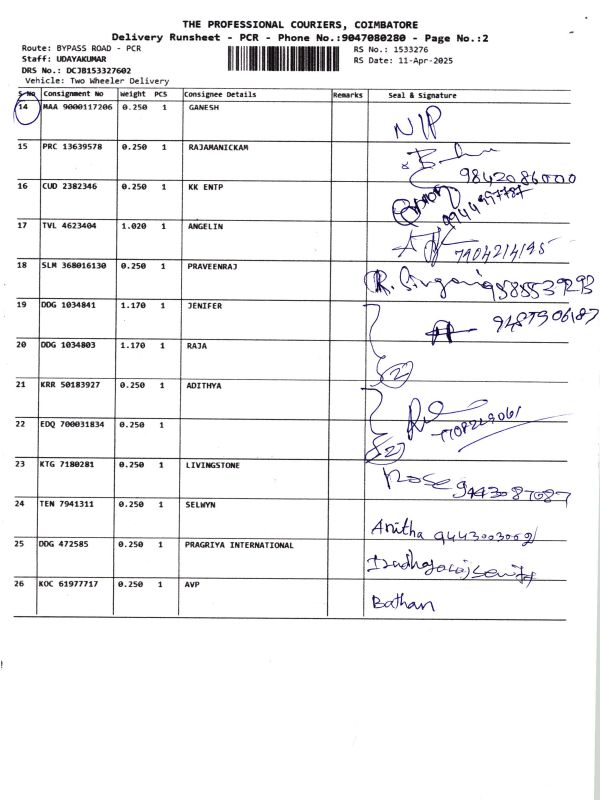 THE PROFESSIONAL COURIERS, COIMBATORE
Delivery Runsheet - PCR - Phone No.:9047080280 - Page No.:2
Route: BYPASS ROAD - PCR
Staff: UDAYAKUMAR
DRS No.: DCJB153327602
Vehicle: Two Wheeler Delivery
RS No.: 1533276
RS Date: 11-Apr-2025
S No Consignment No Weight PCS Consignee Details Remarks Seal & Signature
14 MAA 9000117206 0.250 1 GANESH N/P
15 PRC 13639578 0.250 1 RAJAMANICKAM
16 CUD 2382346 0.250 1 KK ENTP
17 TVL 4623404 1.020 1 ANGELIN 7904214195
18 SLM 368016130 0.250 1 PRAVEENRAJ
19 DDG 1034841 1.170 1 JENIFER
20 DDG 1034803 1.170 1 RAJA (2)
21 KRR 50183927 0.250 1 ADITHYA
22 EDQ 700031834 0.250 1 (2)
23 KTG 7180281 0.250 1 LIVINGSTONE Rose 9443087087
24 TEN 7941311 0.250 1 SELWYN Anitha 9443003002
25 DDG 472585 0.250 1 PRAGRIYA INTERNATIONAL
26 KOC 61977717 0.250 1 AVP Bathan